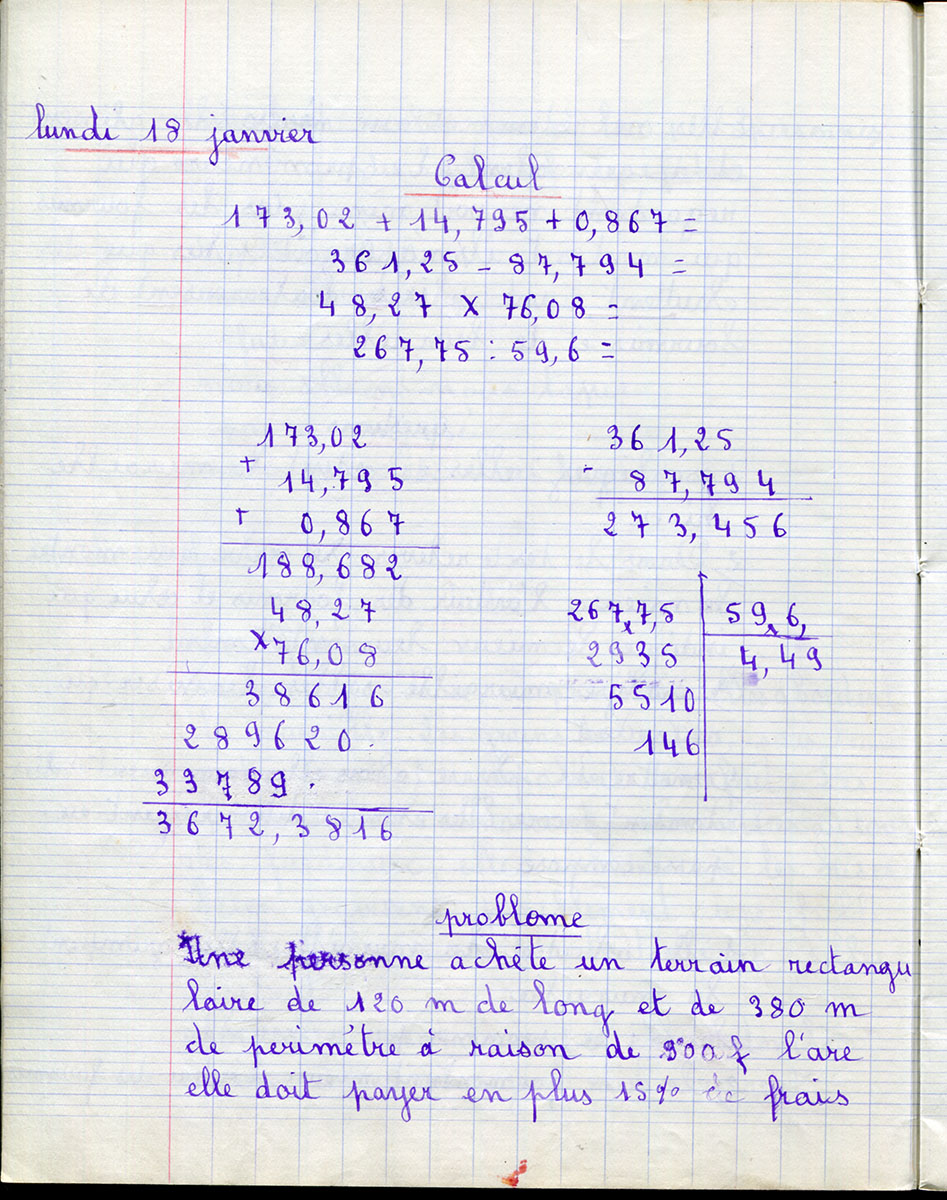 lundi 18 janvier
Calcul
173,02 + 14,795 + 0,867 =
361,25 - 87,794 =
48,27 x 76,08 =
267,75 : 59,6 =
173,02
+ 14,795
+ 0,867
188,682
361,25
- 87,794
273,456
48,27
x 76,08
38616
289620.
33789.
3672,3816
267,7,5 59,6,
2935 4,49
5510
146
problome
Une personne achète un terrain rectangu
laire de 120 m de long et de 380 m
de perimétre à raison de 900 f l'are
elle doit payer en plus 15% de frais